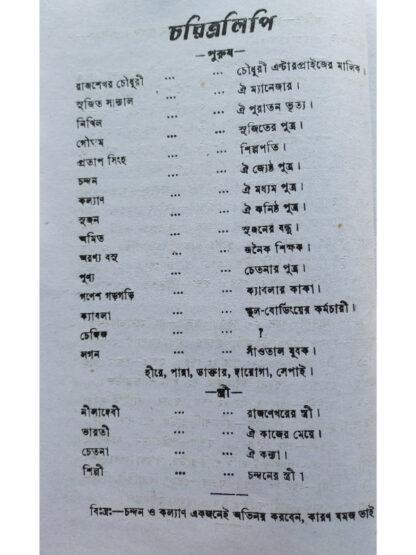 চরিত্রলিপি
—পুরুষ—
রাজশেখর চৌধুরী ... ... চৌধুরী এন্টারপ্রাইজের মালিক।
সুজিত সান্যাল ... ... ঐ ম্যানেজার।
নিখিল ... ... ঐ পুরাতন ভৃত্য।
গৌতম ... ... সুজিতের পুত্র।
প্রতাপ সিংহ ... ... শিল্পপতি।
চন্দন ... ... ঐ জ্যেষ্ঠ পুত্র।
কল্যাণ ... ... ঐ মধ্যম পুত্র।
সুজন ... ... ঐ কনিষ্ঠ পুত্র।
অমিত ... ... সুজনের বন্ধু।
অরণ্য বসু ... ... জনৈক শিক্ষক।
পুণ্য ... ... চেতনার পুত্র।
গণেশ গড়গড়ি ... ... ক্যাবলার কাকা।
ক্যাবলা ... ... স্কুল-বোর্ডিংয়ের কর্মচারী।
চেঙ্গিজ ... ... ?
লগন ... ... সাঁওতাল যুবক।
হীরে, পান্না, ডাক্তার, দারোগা, সেপাই।
—স্ত্রী—
নীলাদেবী ... ... রাজশেখরের স্ত্রী।
ভারতী ... ... ঐ কাজের মেয়ে।
চেতনা ... ... ঐ কন্যা।
শিল্পী ... ... চন্দনের স্ত্রী।
বিঃদ্রঃ—চন্দন ও কল্যাণ একজনেই অভিনয় করবেন, কারণ যমজ ভাই